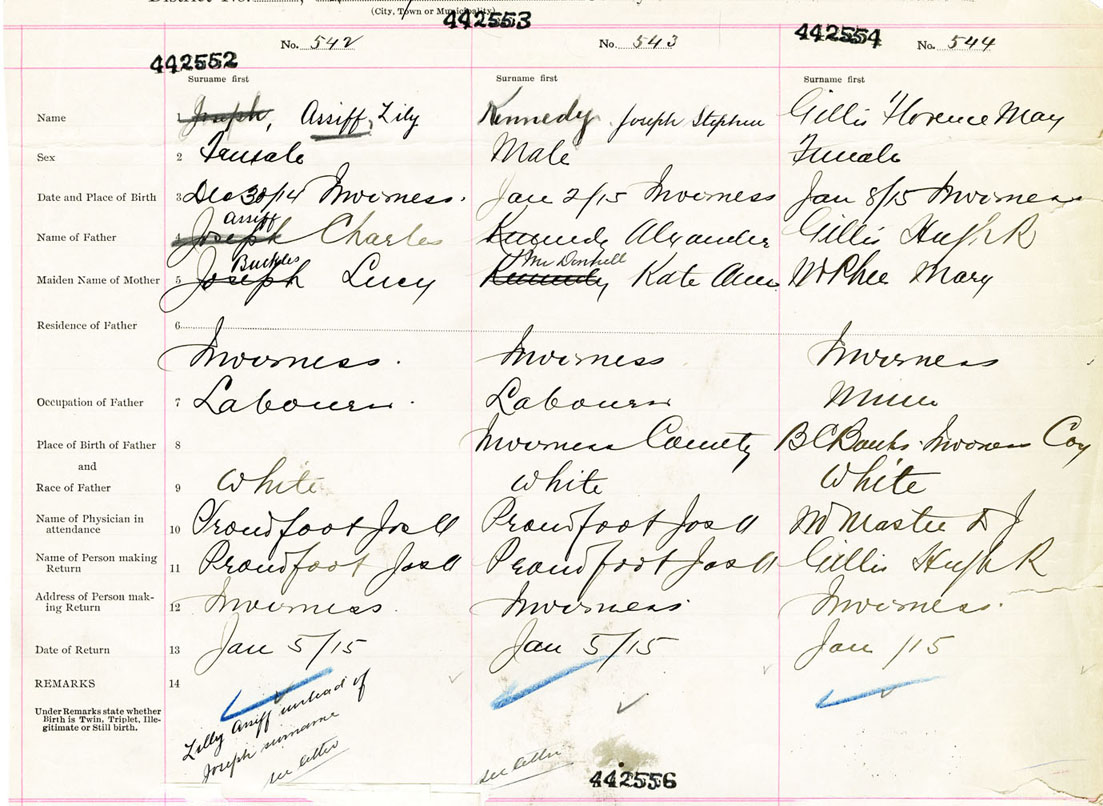 (City, Town or Municipality)
442553
No. 542 No. 543 442554 No. 544
442552
Surname first Surname first Surname first
Name 1 Joseph, Assiff, Lily Kennedy Joseph Stephen Gillis Florence May
Sex 2 Female Male Female
Date and Place of Birth 3 Dec 30/14 Inverness. Jan 2/15 Inverness Jan 8/15 Inverness
Assiff
Name of Father 4 Joseph Charles Kennedy Alexander Gillis Hugh R
Buckles McDonnell
Maiden Name of Mother 5 Joseph Lucy Kennedy Kate Ann McPhee Mary
Residence of Father 6
Inverness. Inverness Inverness
Occupation of Father 7 Labourer. Labourer Miner
Place of Birth of Father 8 Inverness County B C Banks. Inverness Coy
and
Race of Father 9 White White White
Name of Physician in
attendance 10 Proudfoot Jos A Proudfoot Jos A McMaster D J
Name of Person making
Return 11 Proudfoot Jos A Proudfoot Jos A Gillis Hugh R
Address of Person mak-
ing Return 12 Inverness. Inverness. Inverness.
Date of Return 13 Jan 5/15 Jan 5/15 Jan /15
REMARKS 14
Under Remarks state whether
Birth is Twin, Triplet, Ille-
gitimate or Still birth.
Lilly Assiff instead of
Joseph surname
see letter see letter
442556